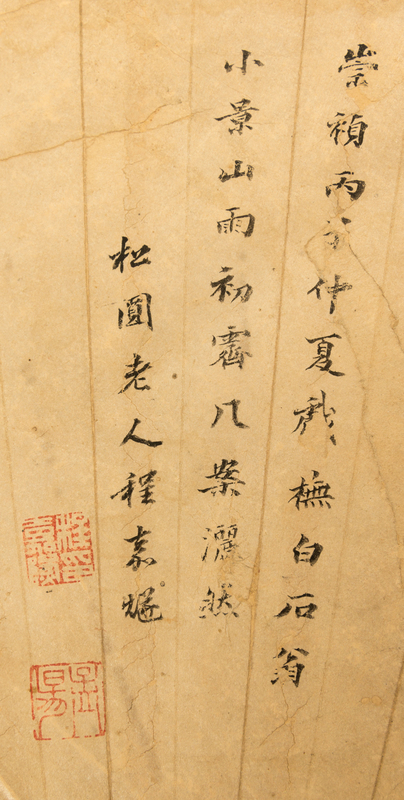 崇禎丙子仲夏戲橅白石翁
小景山雨初霽几案灑然
松圓老人程嘉燧
程印嘉燧
孟陽